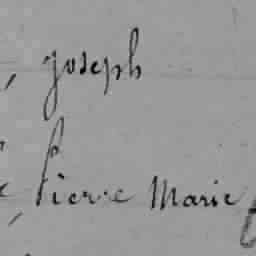 , joseph
, Pierre Marie